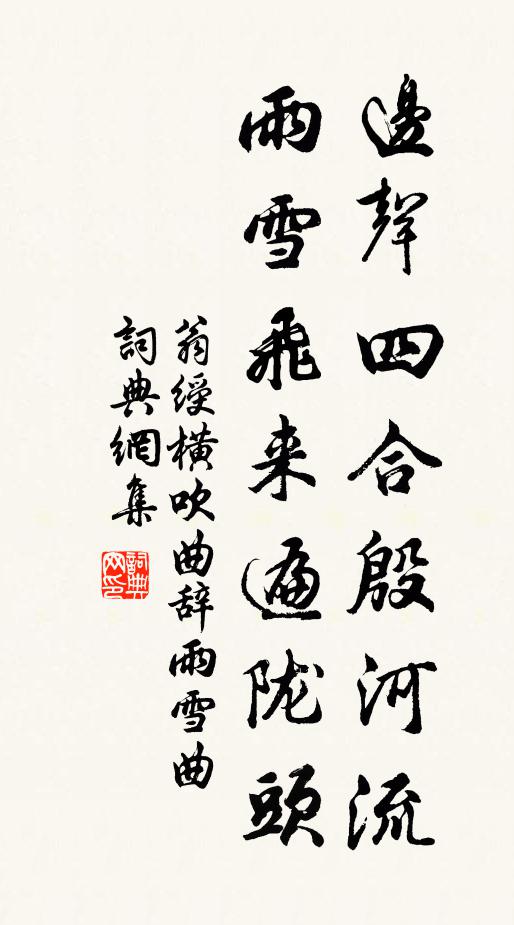 邊聲四合殷河流
雨雪飛来遍陇頭
翁綬横吹曲辞雨雪曲
詞典網集
詞典網印